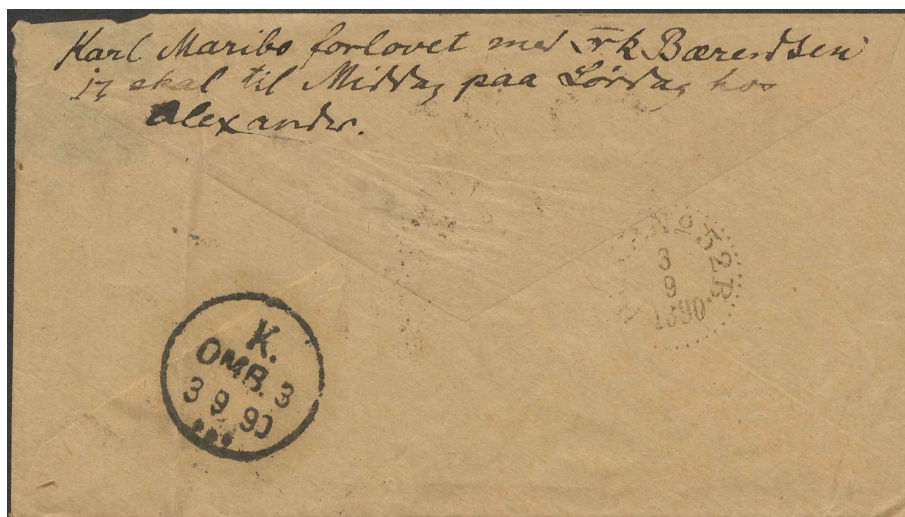 Karl Maribo forlovet med Frk Bærendsen
jeg skal til Middag paa Lørdag hos
Alexander.
No 52 B.
3
9
1890
K.
OMB. 3
3 9 90